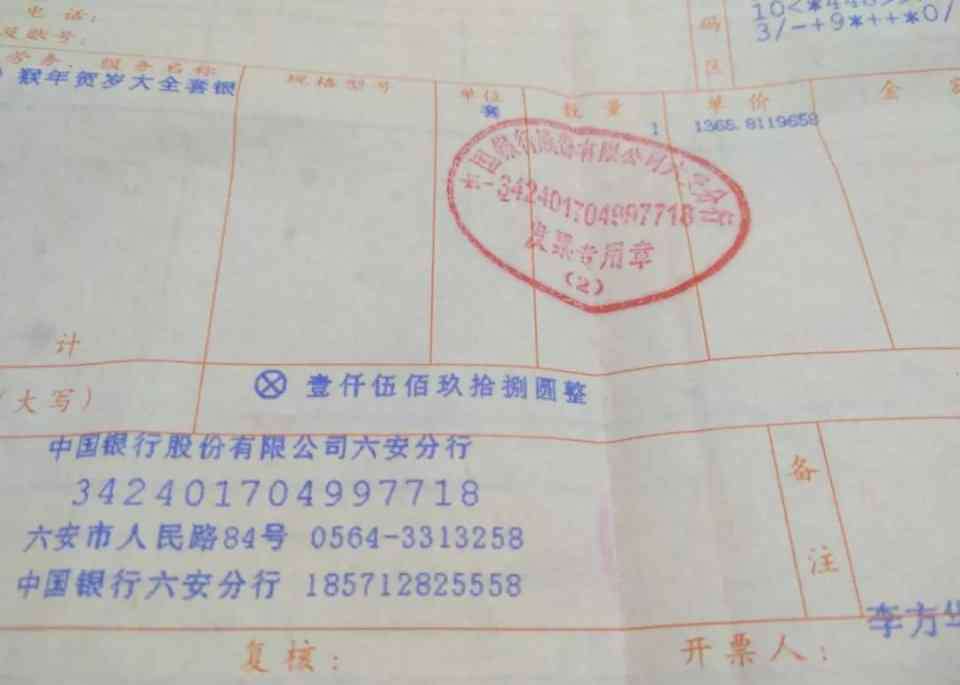 电话:
及账号:
码
区
10<*448
3/-+9*++*0/
劳务、服务名称 规格型号 单位 数量 单价 金
猴年贺岁大全套银 套 1 1365.8119658
中国银行股份有限公司六安分行
342401704997718
发票专用章
(2)
计
(大写) ⊗ 壹仟伍佰玖拾捌圆整
中国银行股份有限公司六安分行
342401704997718
六安市人民路84号 0564-3313258
中国银行六安分行 185712825558
备
注
复核: 开票人: 李方华